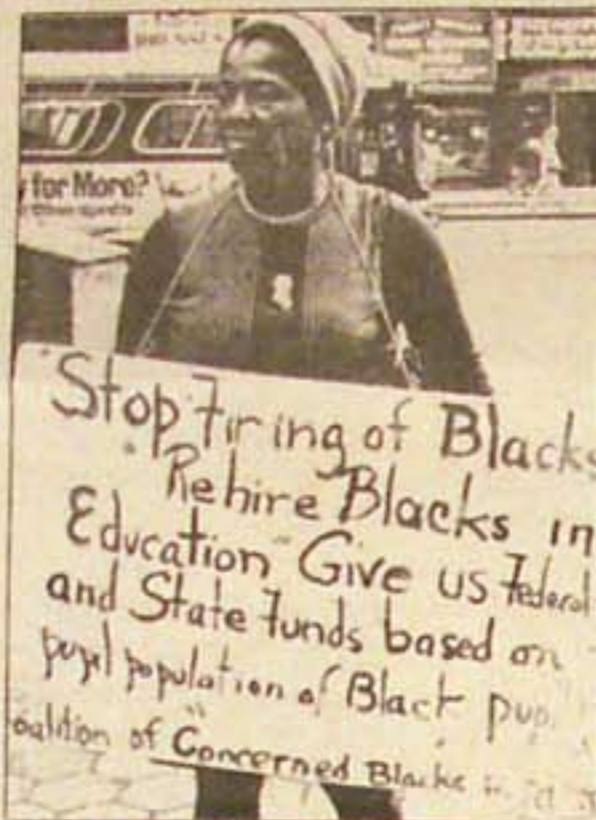 for More?
Stop firing of Blacks
Rehire Blacks in
Education Give us Federal
and State funds based on
pupil population of Black
Coalition of Concerned Blacks